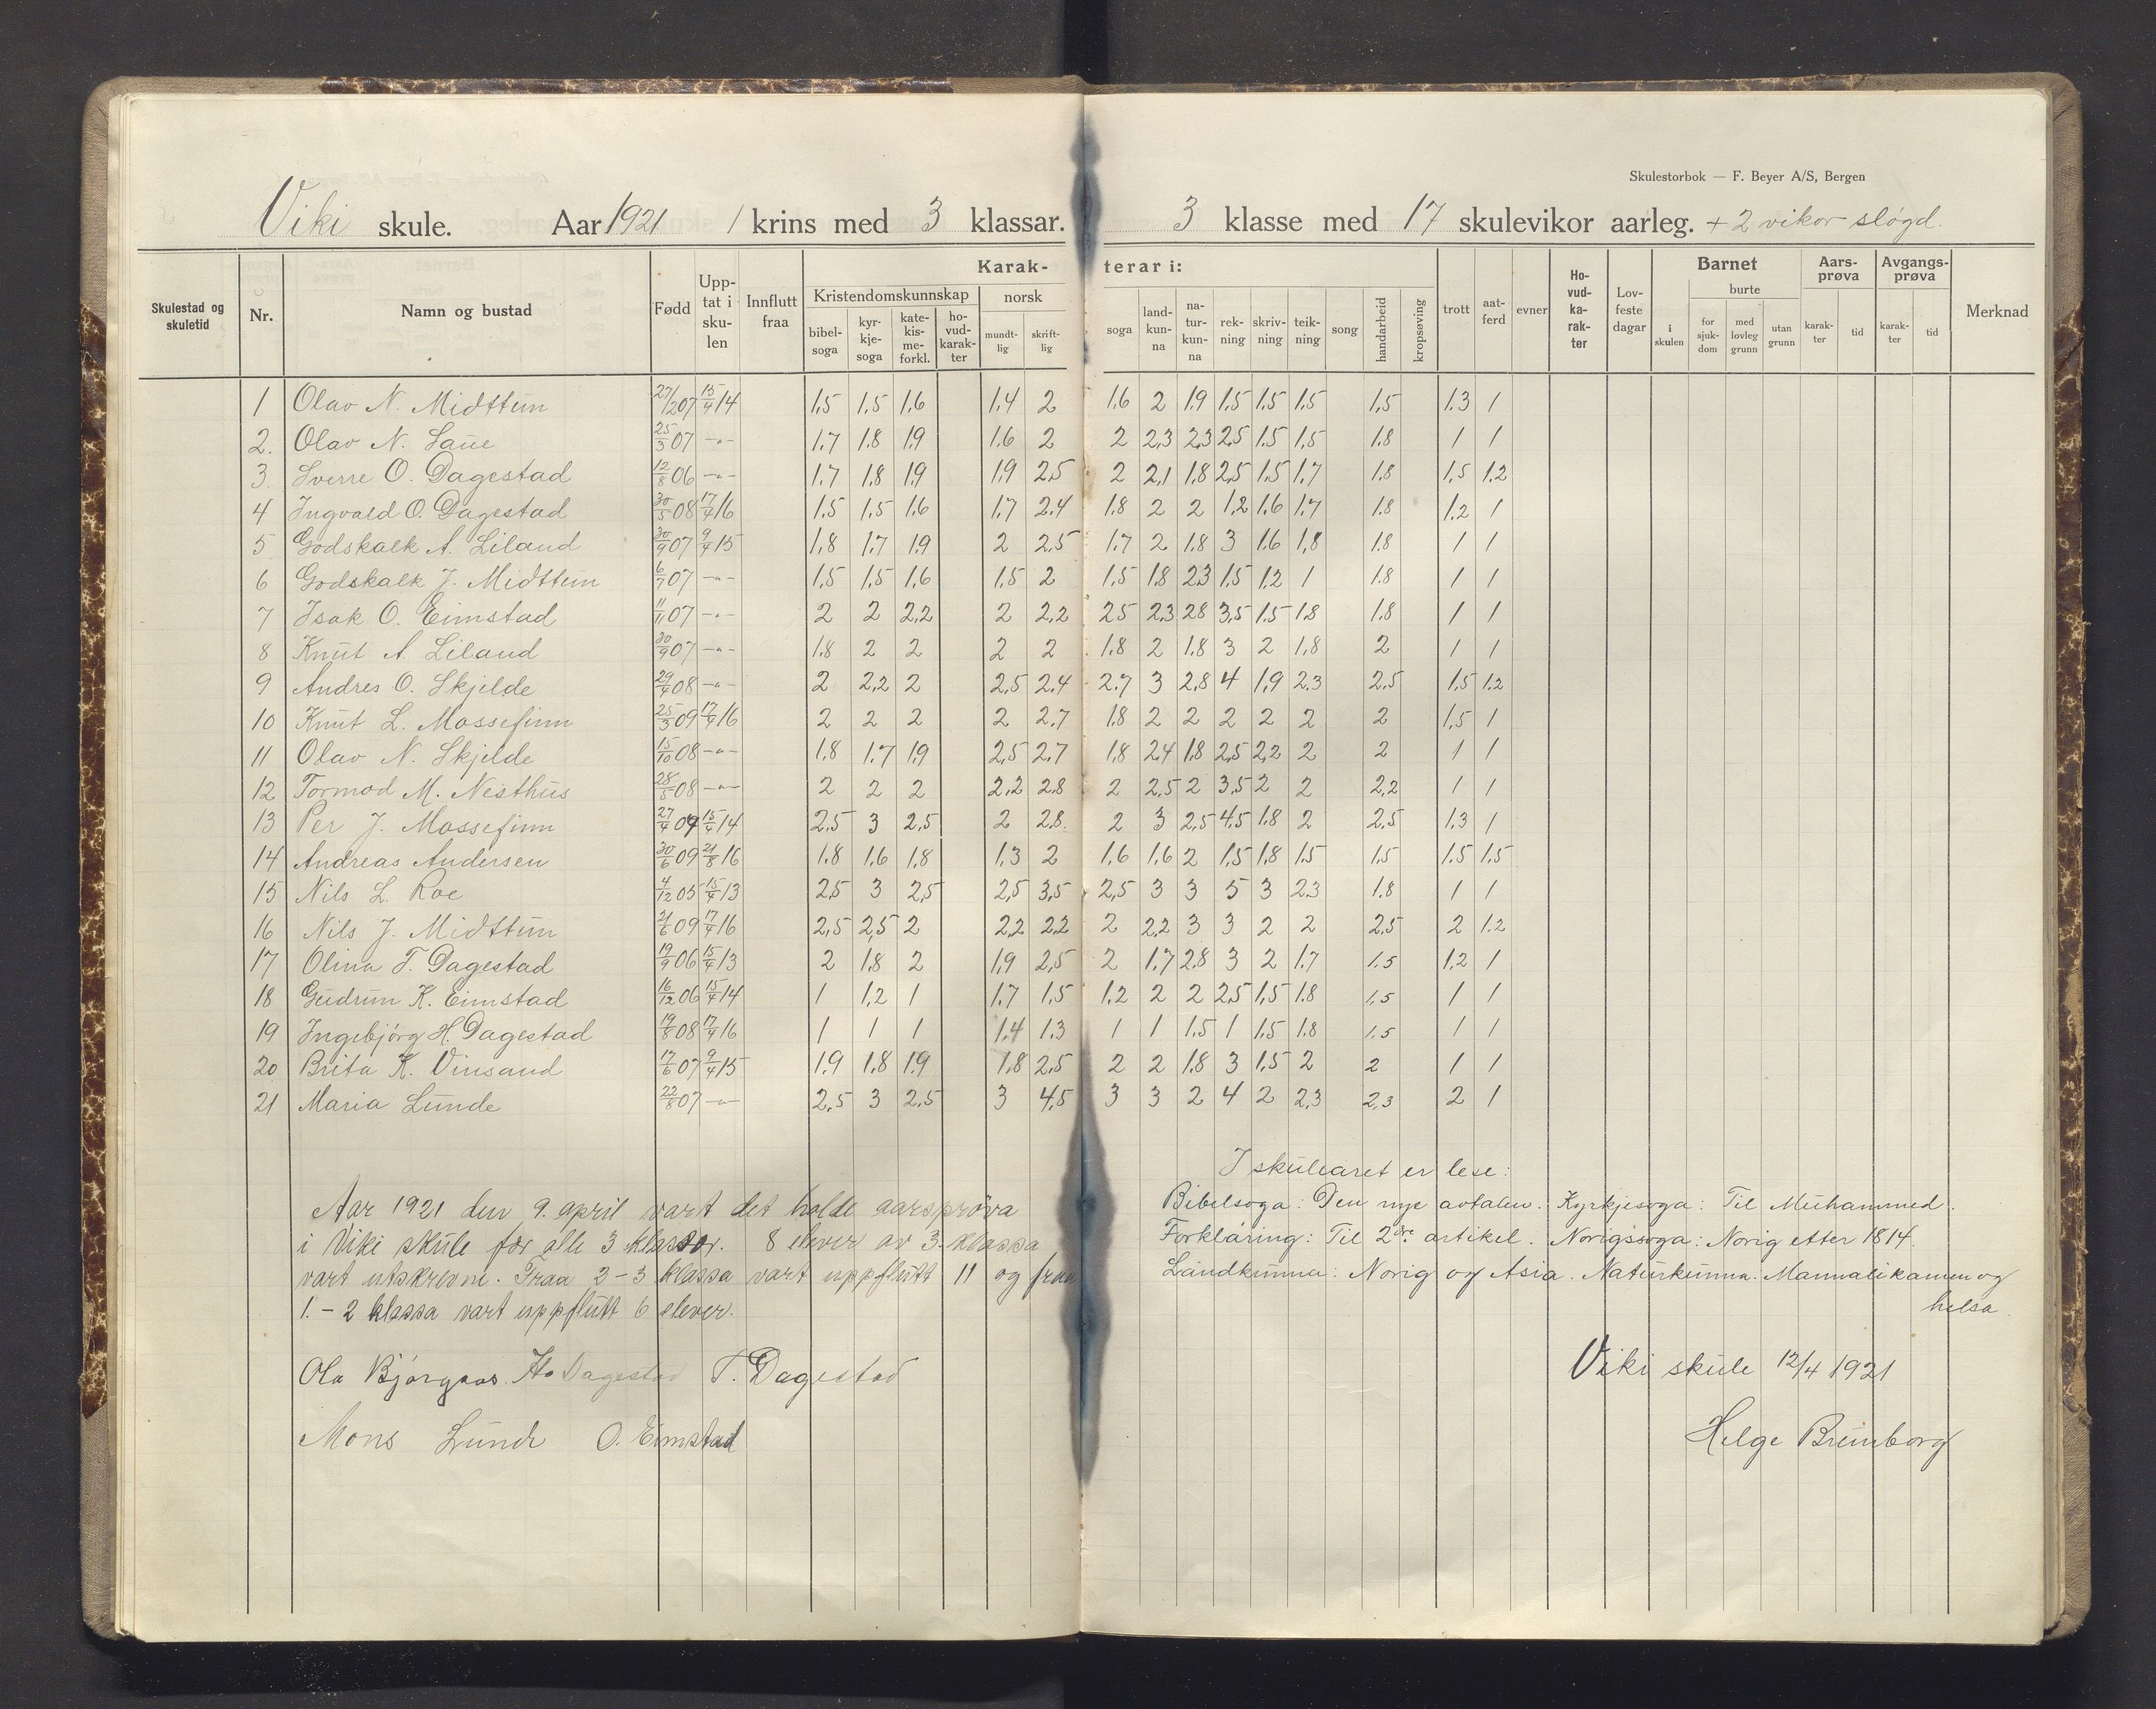 Skulestorbok — F. Beyer A/S, Bergen
Viki skule. Aar 1921 1 krins med 3 klassar. 3 klasse med 17 skulevikor aarleg. + 2 vikor sløgd.
Skulestad og skuletid Nr. Namn og bustad Født Upptat i skulen Innflutt fraa Karakterar i: Kristendomskunnskap bibelsoga kyrkjesoga katekismeforkl. hovudkarakter norsk mundtlig skriftlig soga landkunna naturkunna rekning skrivning teikning song handarbeid kropsøving trott aatferd evner Hovudkarakter Lovfeste dagar Barnet i skulen burte for sjukdom med lovleg grunn utan grunn Aarsprøva karakter tid Avgangsprøva karakter tid Merknad
1 Olav N. Midttun 27/2 07 15/4 14 1,5 1,5 1,6 1,4 2 1,6 2 1,9 1,5 1,5 1,5 1,5 1,3 1
2. Olav N. Saue 25/3 07 -"- 1,7 1,8 1,9 1,6 2 2 2,3 2,3 2,5 1,5 1,5 1,8 1 1
3. Sverre O. Dagestad 12/8 06 -"- 1,7 1,8 1,9 1,9 2,5 2 2,1 1,8 2,5 1,5 1,7 1,8 1,5 1,2
4 Ingvald O. Dagestad 30/5 08 17/4 16 1,5 1,5 1,6 1,7 2,4 1,8 2 2 1,2 1,6 1,7 1,8 1,2 1
5 Godskalk A. Liland 30/9 07 9/4 15 1,8 1,7 1,9 2 2,5 1,7 2 1,8 3 1,6 1,8 1,8 1 1
6 Godskalk J. Midttun 6/7 07 -"- 1,5 1,5 1,6 1,5 2 1,5 1,8 2,3 1,5 1,2 1 1,8 1 1
7 Isak O. Eimstad 11/11 07 -"- 2 2 2,2 2 2,2 2,5 2,3 2,8 3,5 1,5 1,8 1,8 1 1
8 Knut A. Liland 30/9 07 -"- 1,8 2 2 2 2 1,8 2 1,8 3 2 1,8 2 1 1
9 Andres O. Skjelde 29/4 08 -"- 2 2,2 2 2,5 2,4 2,7 3 2,8 4 1,9 2,3 2,5 1,5 1,2
10 Knut L. Mossefinn 25/3 09 17/4 16 2 2 2 2 2,7 1,8 2 2 2 2 2 2 1,5 1
11 Olav N. Skjelde 15/10 08 -"- 1,8 1,7 1,9 2,5 2,7 1,8 2,4 1,8 2,5 2,2 2 2 1 1
12 Tormod M. Nesthus 28/5 08 -"- 2 2 2 2,2 2,8 2 2,5 2 3,5 2 2 2,2 1 1
13 Per J. Mossefinn 27/4 07 15/4 14 2,5 3 2,5 2 2,8 2 3 2,5 4,5 1,8 2 2,5 1,3 1
14 Andreas Andersen 30/6 09 21/8 16 1,8 1,6 1,8 1,3 2 1,6 1,6 2 1,5 1,8 1,5 1,5 1,5 1,5
15 Nils L. Roe 4/12 05 15/4 13 2,5 3 2,5 2,5 3,5 2,5 3 3 5 3 2,3 1,8 1 1
16 Nils J. Midttun 21/6 09 17/4 16 2,5 2,5 2 2,2 2,2 2 2,2 3 3 2 2 2,5 2 1,2
17 Olina T. Dagestad 19/9 06 15/4 13 2 1,8 2 1,9 2,5 2 1,7 2,8 3 2 1,7 1,5 1,2 1
18 Gudrun K. Eimstad 16/12 06 15/4 14 1 1,2 1 1,7 1,5 1,2 2 2 2,5 1,5 1,8 1,5 1 1
19 Ingebjørg H. Dagestad 19/8 08 17/4 16 1 1 1 1,4 1,3 1 1 1,5 1 1,5 1,8 1,5 1 1
20 Brita K. Vinsand 17/6 07 9/4 15 1,9 1,8 1,9 1,8 2,5 2 2 1,8 3 1,5 2 2 1 1
21 Maria Lunde 22/8 07 -"- 2,5 3 2,5 3 4,5 3 3 2 4 2 2,3 2,3 2 1
Aar 1921 den 9. april vart det holde aarsprøva
i Viki skule for alle 3 klassor. 8 elever av 3. klassa
vart utskrevne. Fraa 2-3 klassa vart uppflutt 11 og fraa
1.-2 klassa vart uppflutt 6 elever.
Ola Bjørgaas. H. Dagestad T. Dagestad
Mons Lunde O. Eimstad
I skulearet er lese:
Bibelsoga: Den nye avtalen. Kyrkjesoga: Til Muhammed.
Forklåring: Til 2dre artikel. Norigssoga: Norig etter 1814.
Landkunna: Norig og Asia. Naturkunna. Mannalikamen og
helsa.
Viki skule 12/4 1921
Helge Brimborg